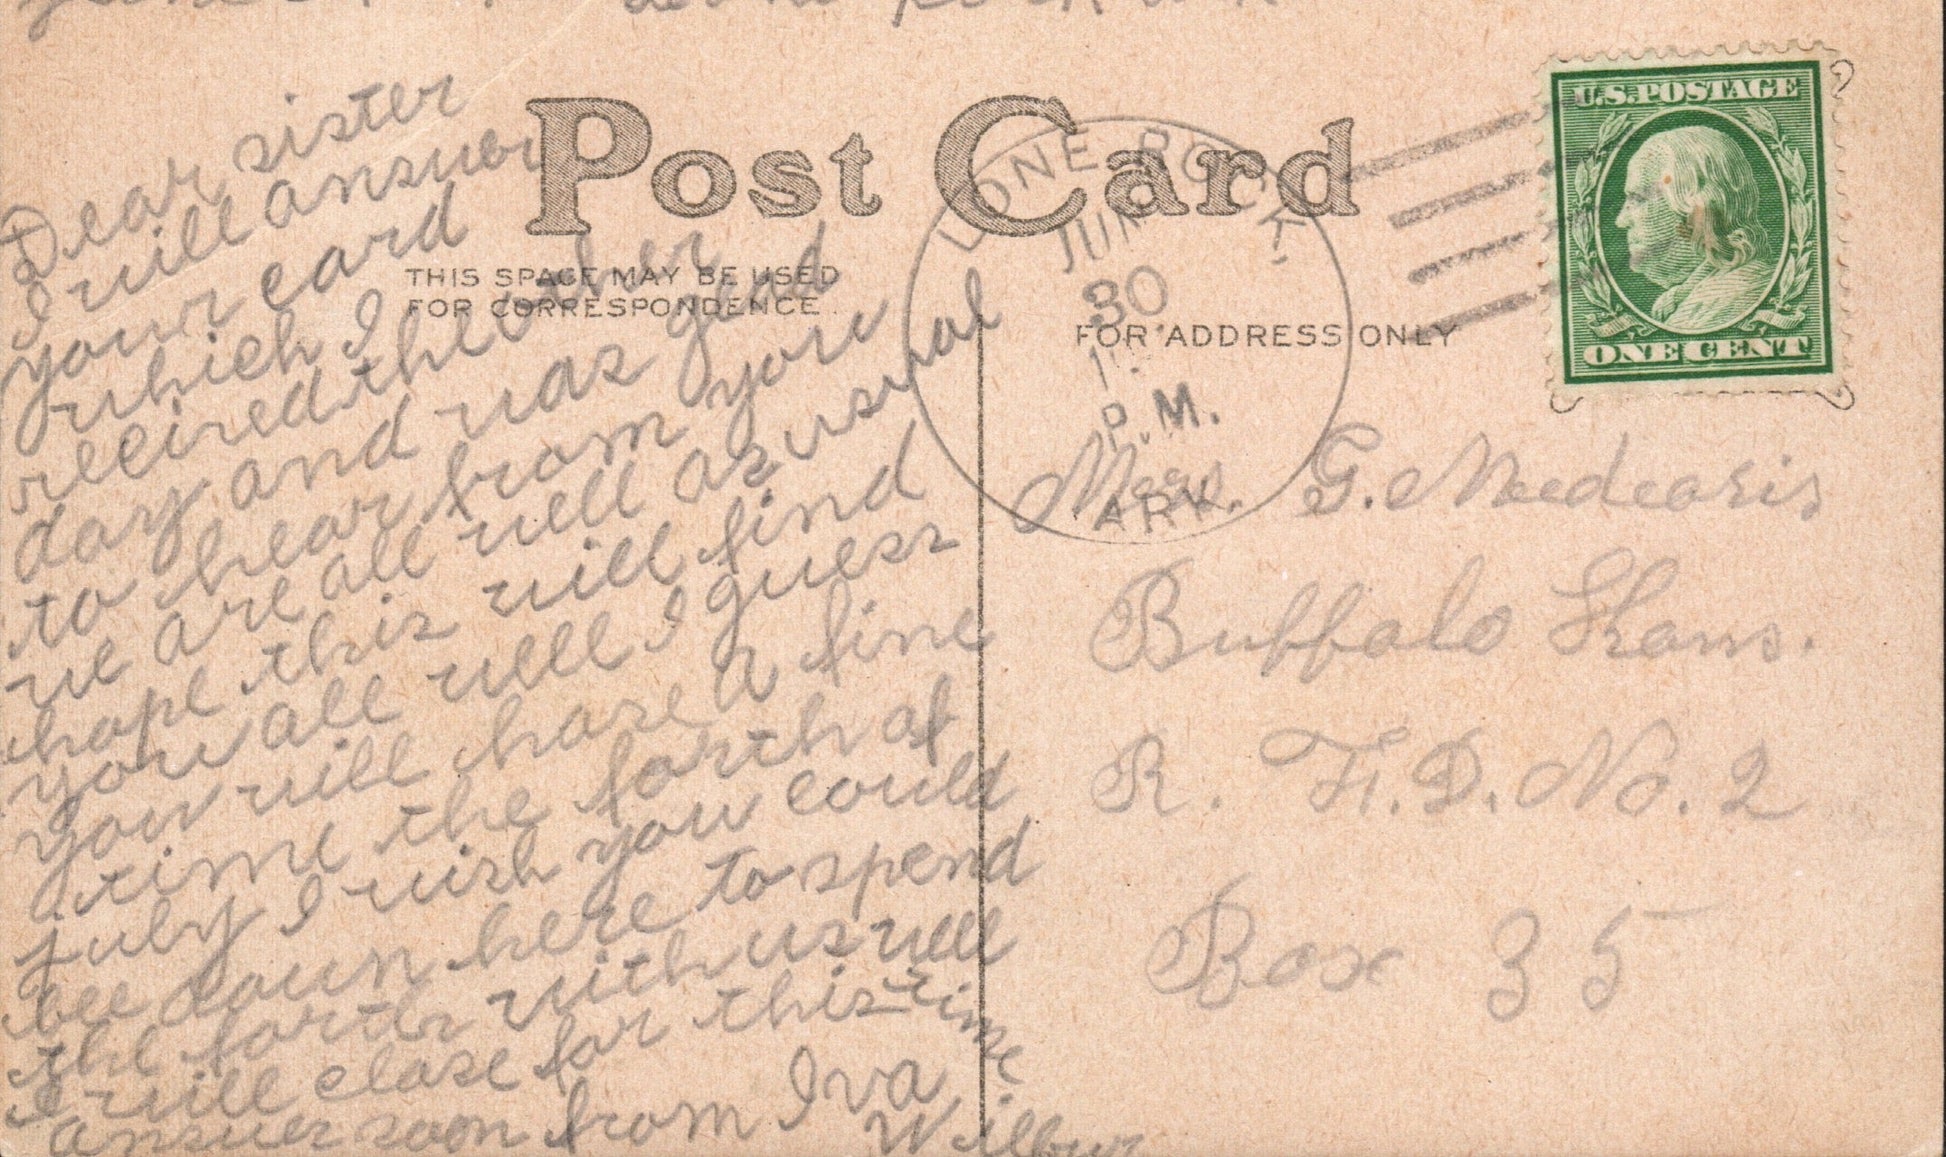 Lone Rock Ark
Dear sister
I will answer
your card
which I
recived the other
day and was glad
to hear from you
we are all well as usual
hope this will find
you all well I guess
you will have a fine
time the forth of
july I wish you could
bee down here to spend
the forth with us well
I will close for this time
answer soon from Iva
Wilbur
Post Card
THIS SPACE MAY BE USED
FOR CORRESPONDENCE.
FOR ADDRESS ONLY
LONE ROCK.
JUN
30
P.M.
ARK.
U.S.POSTAGE
ONE CENT
G. Meedearis
Buffalo Kans.
R. F.D. No. 2
Box 35